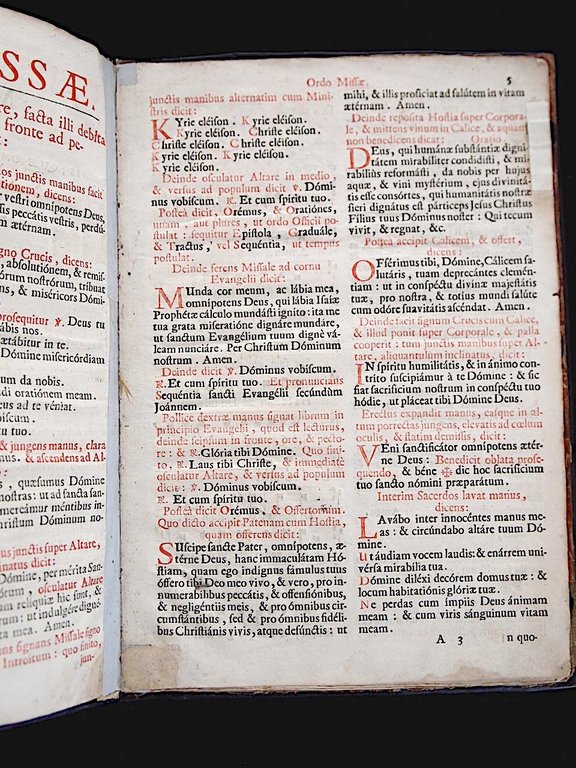 SSÆ.
re, facta illi debita
fronte ad pe-
:
los junctis manibus facit
tionem, dicens:
vestri omnipotens Deus,
sis peccátis vestris, perdú-
m ætérnam.
gno Crucis, dicens:
, absolutiónem, & remis-
órum nostrórum, tríbuat
ens, & miséricors Dómi-
prosequitur ℣. Deus tu
ábis nos.
ætábitur in te.
Dómine misericórdiam
um da nobis.
di oratiónem meam.
eus ad te véniat.
obíscum.
tu tuo.
& jungens manus, clara
mus. & ascendens ad Al-
:
, quæsumus Dómine
nostras: ut ad sancta san-
mereámur méntibus in-
hristum Dóminum no-
s junctis super Altare,
inatus dicit:
Dómine, per mérita San-
órum, osculatur Altare
um relíquiæ hic sunt, &
rum: ut indulgére digné-
ta mea. Amen.
ns signans Missale signo
Introitum: quo finito,
jun-
Ordo Missæ. 5
junctis manibus alternatim cum Mini-
stris dicit:
KYrie eléison. Kyrie eléison.
Kyrie eléison. Christe eléison.
Christe eléison. Christe eléison.
Kyrie eléison. Kyrie eléison.
Kyrie eléison.
Deinde osculatur Altare in medio,
& versus ad populum dicit ℣. Dómi-
nus vobíscum. ℟. Et cum spíritu tuo.
Posteà dicit, Orémus, & Oratiónes,
unam, aut plures, ut ordo Officii po-
stulat: sequitur Epístola, Graduále,
& Tractus, vel Sequéntia, ut tempus
postulat.
Deinde ferens Missale ad cornu
Evangelii dicit:
MUnda cor meum, ac lábia mea,
omnípotens Deus, qui lábia Isaíæ
Prophétæ cálculo mundásti igníto: ita me
tua grata miseratióne dignáre mundáre,
ut sanctum Evangélium tuum dignè vá-
leam nunciáre. Per Christum Dóminum
nostrum. Amen.
Deinde dicit ℣. Dóminus vobíscum.
℟. Et cum spíritu tuo. Et pronuncians
Sequéntia sancti Evangélii secúndùm
Joánnem.
Pollice dextræ manus signat librum in
principio Evangelii, quod est lecturus,
deinde seipsum in fronte, ore, & pecto-
re: & ℟. Glória tibi Dómine. Quo fini-
to, ℟. Laus tibi Christe, & immediatè
osculatur Altare, & versus ad populum
dicit: ℣. Dóminus vobíscum.
℟. Et cum spíritu tuo.
Posteà dicit Orémus, & Offertorium.
Quo dicto accipit Patenam cum Hostia,
quam offerens dicit:
SUscipe sancte Pater, omnípotens, æ-
térne Deus, hanc immaculátam Hó-
stiam, quam ego indígnus fámulus tuus
óffero tibi Deo meo vivo, & vero, pro in-
numerabílibus peccátis, & offensiónibus,
& negligéntiis meis, & pro ómnibus cir-
cumstántibus, sed & pro ómnibus fidéli-
bus Christiánis vivis, atque defúnctis: ut
mihi, & illis profíciat ad salútem in vitam
ætérnam. Amen.
Deinde reposita Hostia super Corpora-
le, & mittens vinum in Calice, & aquam
non benedicens dicat: Oratio
DEus, qui humánæ substántiæ digni-
tátem mirabíliter condidísti, & mi-
rabíliùs reformásti, da nobis per hujus
aquæ, & vini mystérium, ejus divinitá-
tis esse consórtes, qui humanitátis nostræ
fíeri dignátus est párticeps Jesus Christus
Fílius tuus Dóminus noster: Qui tecum
vivit, & regnat, &c.
Posteà accipit Calicem, & offert,
dicens:
OFférimus tibi, Dómine, Cálicem sa-
lutáris, tuam deprecántes clemén-
tiam: ut in conspéctu divínæ majestátis
tuæ, pro nostra, & totíus mundi salúte
cum odóre suavitátis ascéndat. Amen.
Deinde facit signum Crucis cum Calice,
& illud ponit super Corporale, & palla
cooperit: tum junctis manibus super Al-
tare, aliquantulum inclinatus, dicit:
IN spíritu humilitátis, & in ánimo con-
tríto suscipiámur à te Dómine: & sic
fiat sacrifícium nostrum in conspéctu tuo
hódie, ut pláceat tibi Dómine Deus.
Erectus expandit manus, easque in al-
tum porrectas jungens, elevatis ad cœlum
oculis, & statim demissis, dicit:
VEni sanctificátor omnípotens ætér-
ne Deus: Benedicit oblata prose-
quendo, & béne ✠ dic hoc sacrifícium
tuo sancto nómini præparátum.
Interim Sacerdos lavat manus,
dicens:
LAvábo inter innocéntes manus me-
as: & circúndabo altáre tuum Dó-
mine.
Ut áudiam vocem laudis: & enárrem uni-
vérsa mirabília tua.
Dómine diléxi decórem domus tuæ: &
locum habitatiónis glóriæ tuæ.
Ne perdas cum ímpiis Deus ánimam
meam: & cum viris sánguinum vitam
meam.
A 3 in quo-